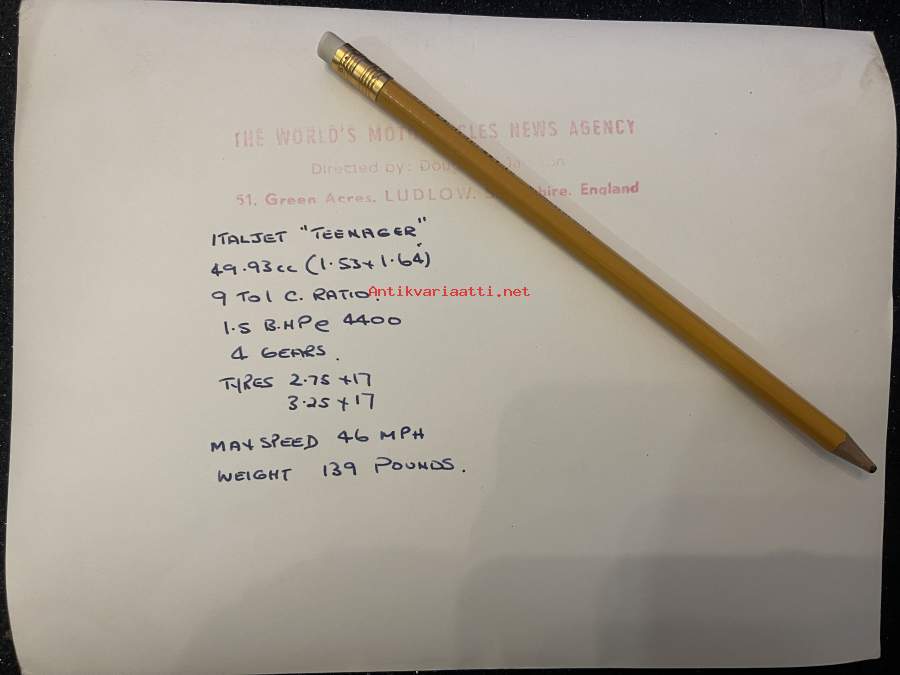 THE WORLD'S NEWS AGENCY
Directed by:
51, Green Acres, LUDLOW, England
ITALJET "TEENAGER"
49.93cc (1.53 x 1.64)
9 TO 1 C. RATIO.
Antikvariaatti.net
1.5 B.HP@ 4400
4 GEARS.
TYRES 2.75 x 17
3.25 x 17
MAX SPEED 46 MPH
WEIGHT 139 POUNDS.